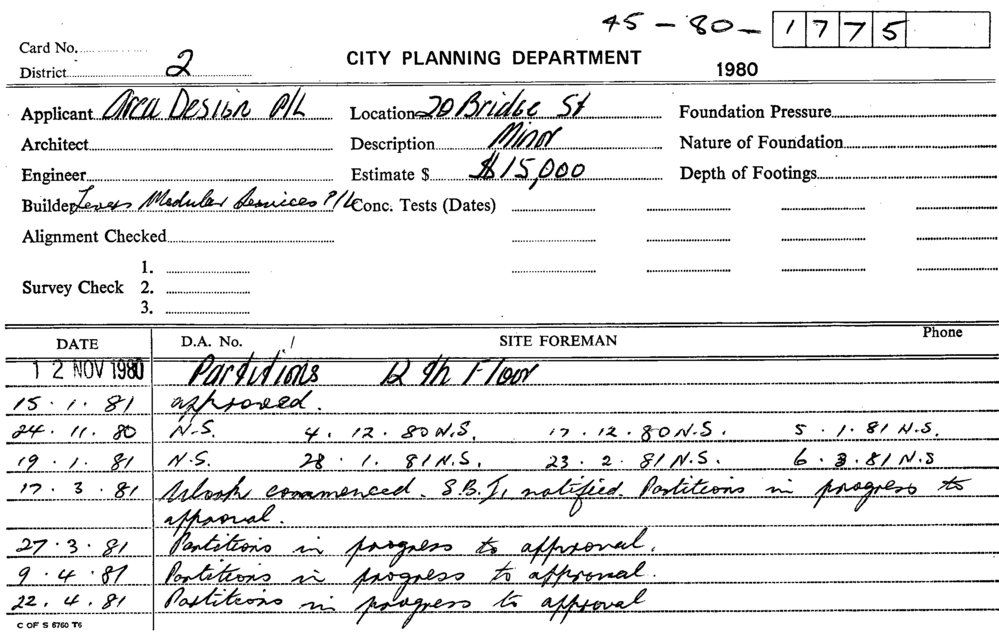 45-80-1775
Card No.
District 2
CITY PLANNING DEPARTMENT
1980
Applicant Area Design P/L Location 20 Bridge St Foundation Pressure
Architect Description Minor Nature of Foundation
Engineer Estimate $ $15,000 Depth of Footings
Builder Levers Modular Services P/L Conc. Tests (Dates)
Alignment Checked
1.
Survey Check 2.
3.
DATE D.A. No. / SITE FOREMAN Phone
12 NOV 1980 Partitions 12th Floor
15.1.81 approved.
24.11.80 N.S. 4.12.80 N.S. 17.12.80 N.S. 5.1.81 N.S.
19.1.81 N.S. 28.1.81 N.S. 23.2.81 N.S. 6.3.81 N.S
17.3.81 Work commenced. S.B.I. notified. Partitions in progress to
approval.
27.3.81 Partitions in progress to approval.
9.4.81 Partitions in progress to approval.
22.4.81 Partitions in progress to approval
C OF S 6760 T6